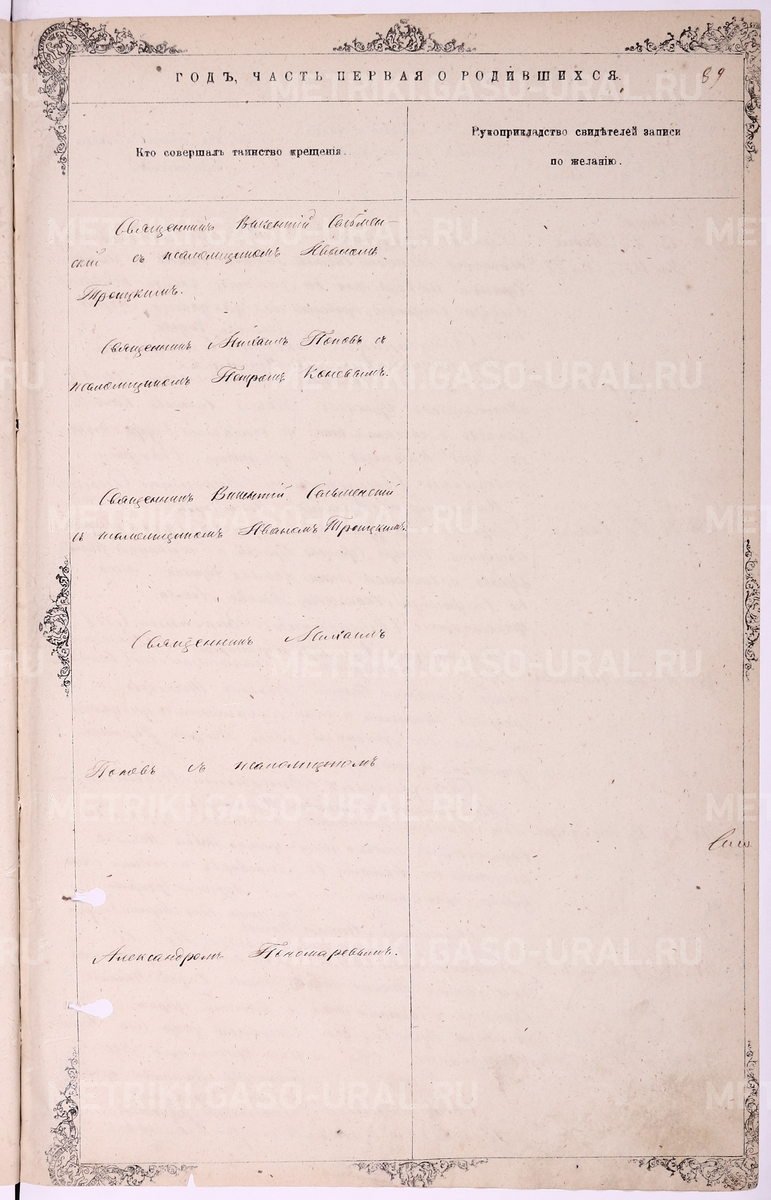 ГОДЪ, ЧАСТЬ ПЕРВАЯ О РОДИВШИХСЯ. 89
Кто совершалъ таинство крещенія.
Рукоприкладство свидѣтелей записи
по желанію.
Священникъ Викентій Сельмен-
скій съ псаломщикомъ Иваномъ
Троицкимъ.
Священникъ Михаилъ Поповъ съ
псаломщикомъ Петромъ Коневымъ.
Священникъ Викентій Сельменскій
съ псаломщикомъ Иваномъ Троицкимъ.
Священникъ Михаилъ
Поповъ съ псаломщикомъ
Александромъ Пономаревымъ.
METRIKI.GASO-URAL.RU